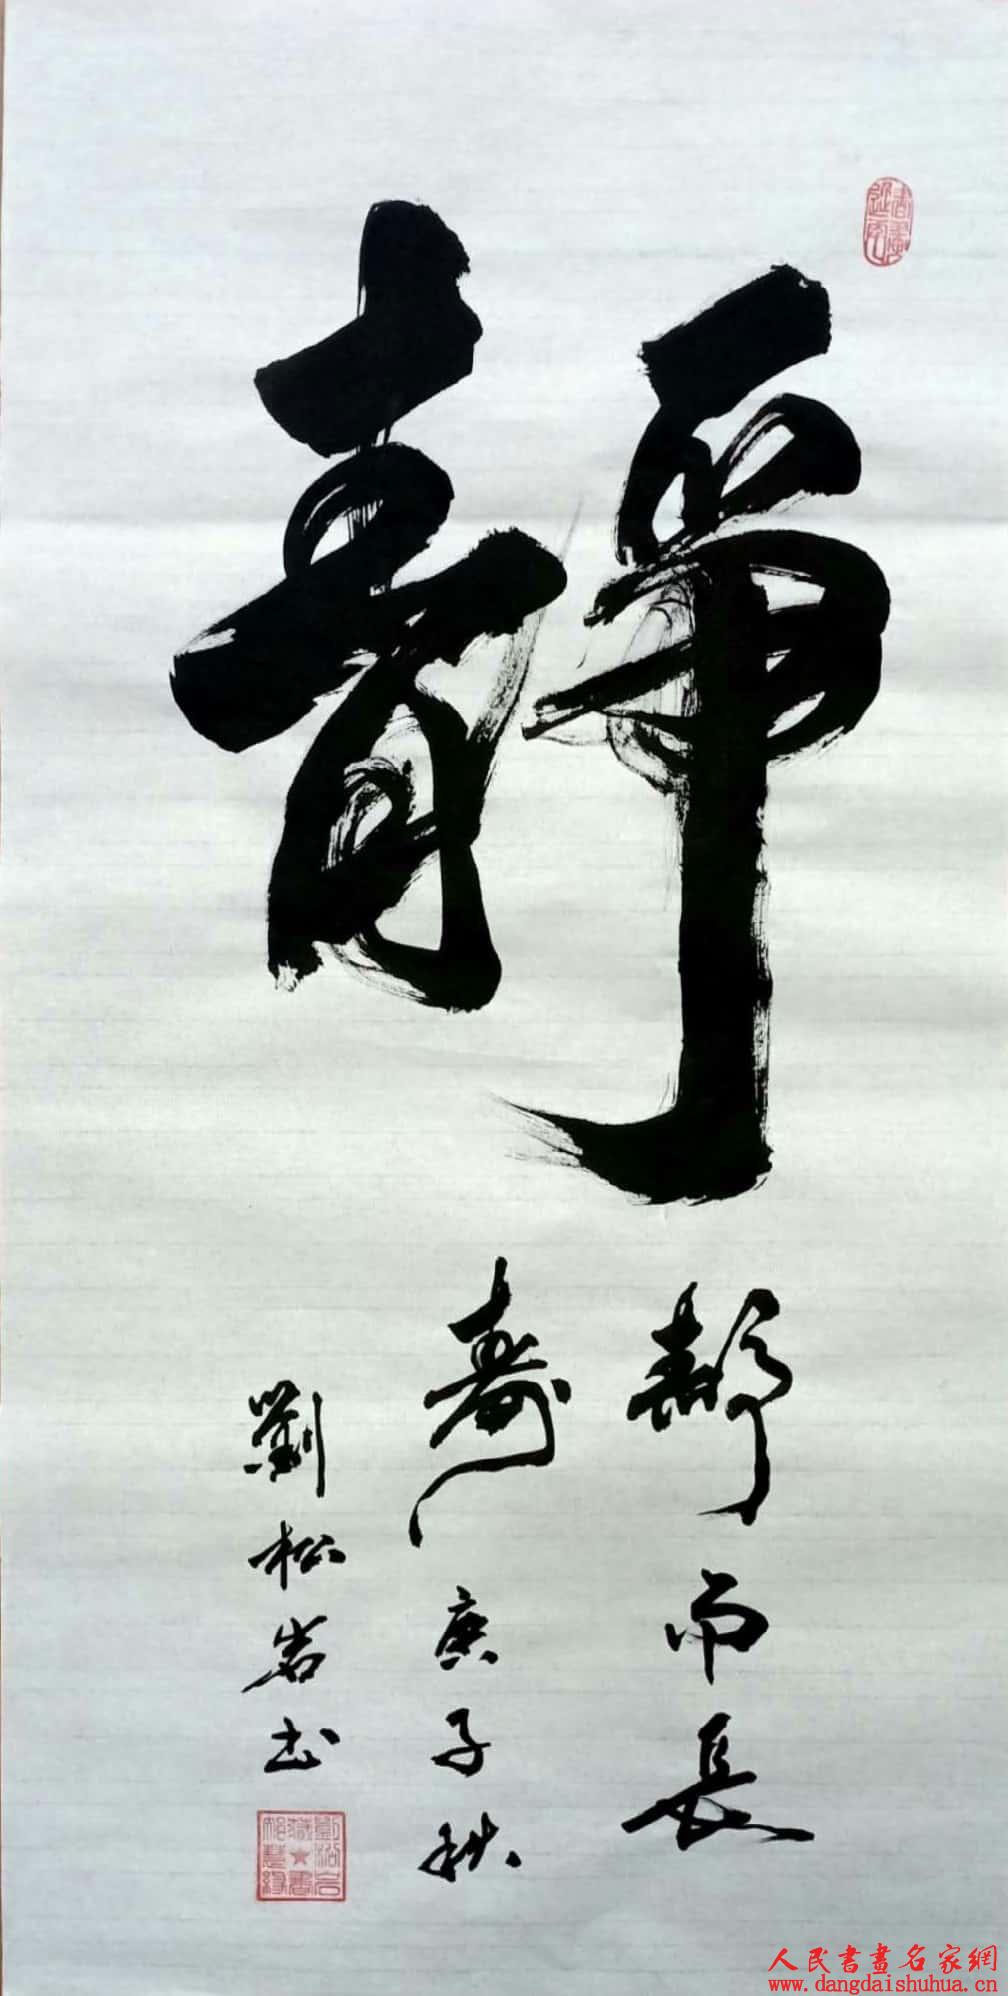 靜
靜而長
壽庚子秋
劉松岩书
人民書畫名家網
www.dangdaishuhua.cn